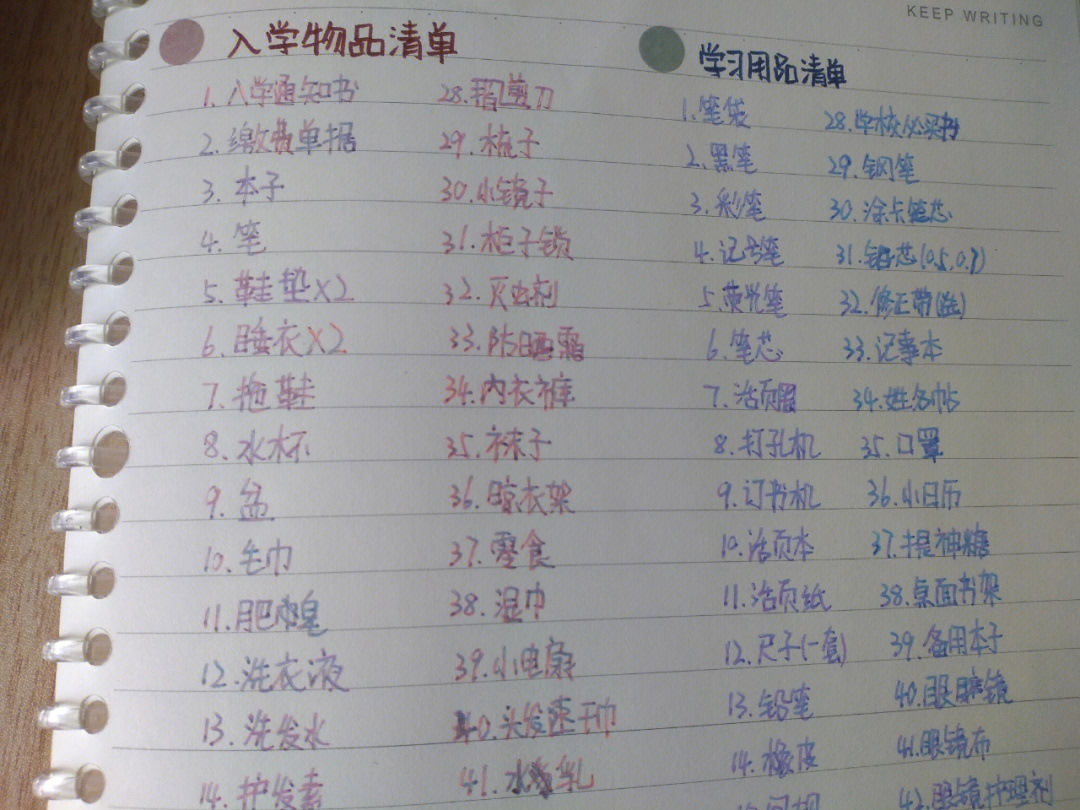 KEEP WRITING
入学物品清单
1.入学通知书
2.缴费单据
3.本子
4.笔
5.鞋垫×2
6.睡衣×2
7.拖鞋
8.水杯
9.盆
10.毛巾
11.肥皂
12.洗衣液
13.洗发水
14.护发素
28.指剪刀
29.梳子
30.小镜子
31.柜子锁
32.灭虫剂
33.防晒霜
34.内衣裤
35.袜子
36.晾衣架
37.零食
38.湿巾
39.小电扇
40.头发速干巾
41.水乳
学习用品清单
1.笔袋
2.黑笔
3.彩笔
4.记号笔
5.荧光笔
6.笔芯
7.活页
8.打孔机
9.订书机
10.活页本
11.活页纸
12.尺子(一套)
13.铅笔
14.橡皮
28.学校必买书
29.钢笔
30.涂卡笔芯
31.铅芯(0.5,0.7)
32.修正带
33.记事本
34.姓名帖
35.口罩
36.小日历
37.提神糖
38.桌面书架
39.备用本子
40.眼睛镜
41.眼镜布
42.眼镜护理剂